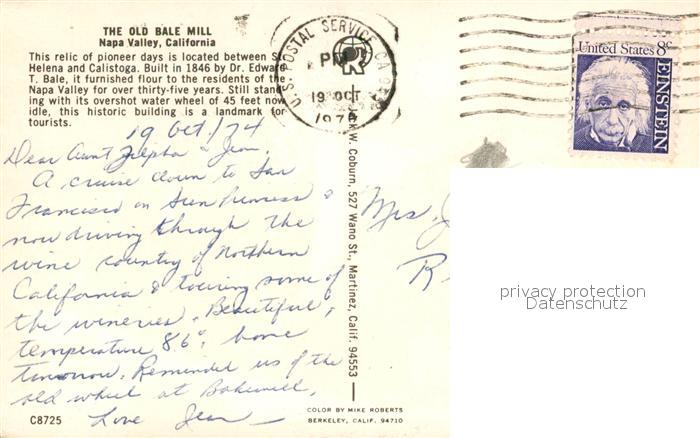 THE OLD BALE MILL
Napa Valley, California
This relic of pioneer days is located between St.
Helena and Calistoga. Built in 1846 by Dr. Edward
T. Bale, it furnished flour to the residents of the
Napa Valley for over thirty-five years. Still stand-
ing with its overshot water wheel of 45 feet now
idle, this historic building is a landmark for
tourists.
U.S. POSTAL SERVICE CA
PM
19 OCT
United States 8c
EINSTEIN
19 Oct/74
Dear Aunt & Jean,
A cruise down to San
Francisco on &
now driving through the
wine country of Northern
California & touring some of
the wineries. Beautiful,
temperature 86°, home
tomorrow. Reminded us of the
old wheel at
Love Jean
Mrs. J
R
Jack W. Coburn, 527 Wano St., Martinez, Calif. 94553
privacy protection
Datenschutz
C8725
COLOR BY MIKE ROBERTS
BERKELEY, CALIF. 94710